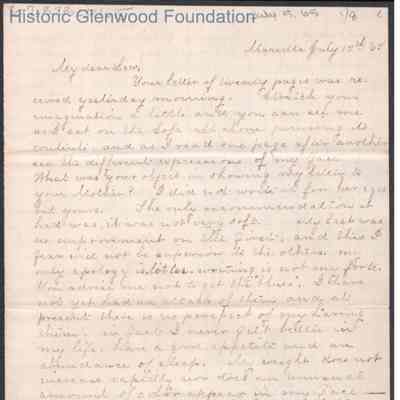 Historic Glenwood Foundation
Marietta July 15th
My dear Lew,
Your letter of twenty pages was re-
ceived yesterday morning. Stretch your
imagination a little and you can see me
as I sat on the sofa perusing its
contents, and as I read one page after another
see the different expressions of my face.
What was your object in showing my letter to
your Mother? I did not write it for her eyes
but yours. The only recommendation it
had was, it was not very soft. My last was
no improvement on the first, and this I
fear will not be superior to the others, my
only apology is, letter writing is not my forte.
You advise me not to get the "blues". I have
not yet had an attack of them, and at
present there is no prospect of my having
them, in fact I never felt better in
my life, have a good appetite and an
abundance of sleep. My weight does not
increase rapidly nor does an unusual
amount of color appear in my face —